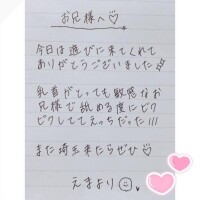 お兄様へ♡
今日は遊びに来てくれて
ありがとうございました☆
乳首がとっても敏感なお
兄様で舐める度にビク
ビクしててえっちだった!!!
また埼玉来たらぜひ♡
えまより☺